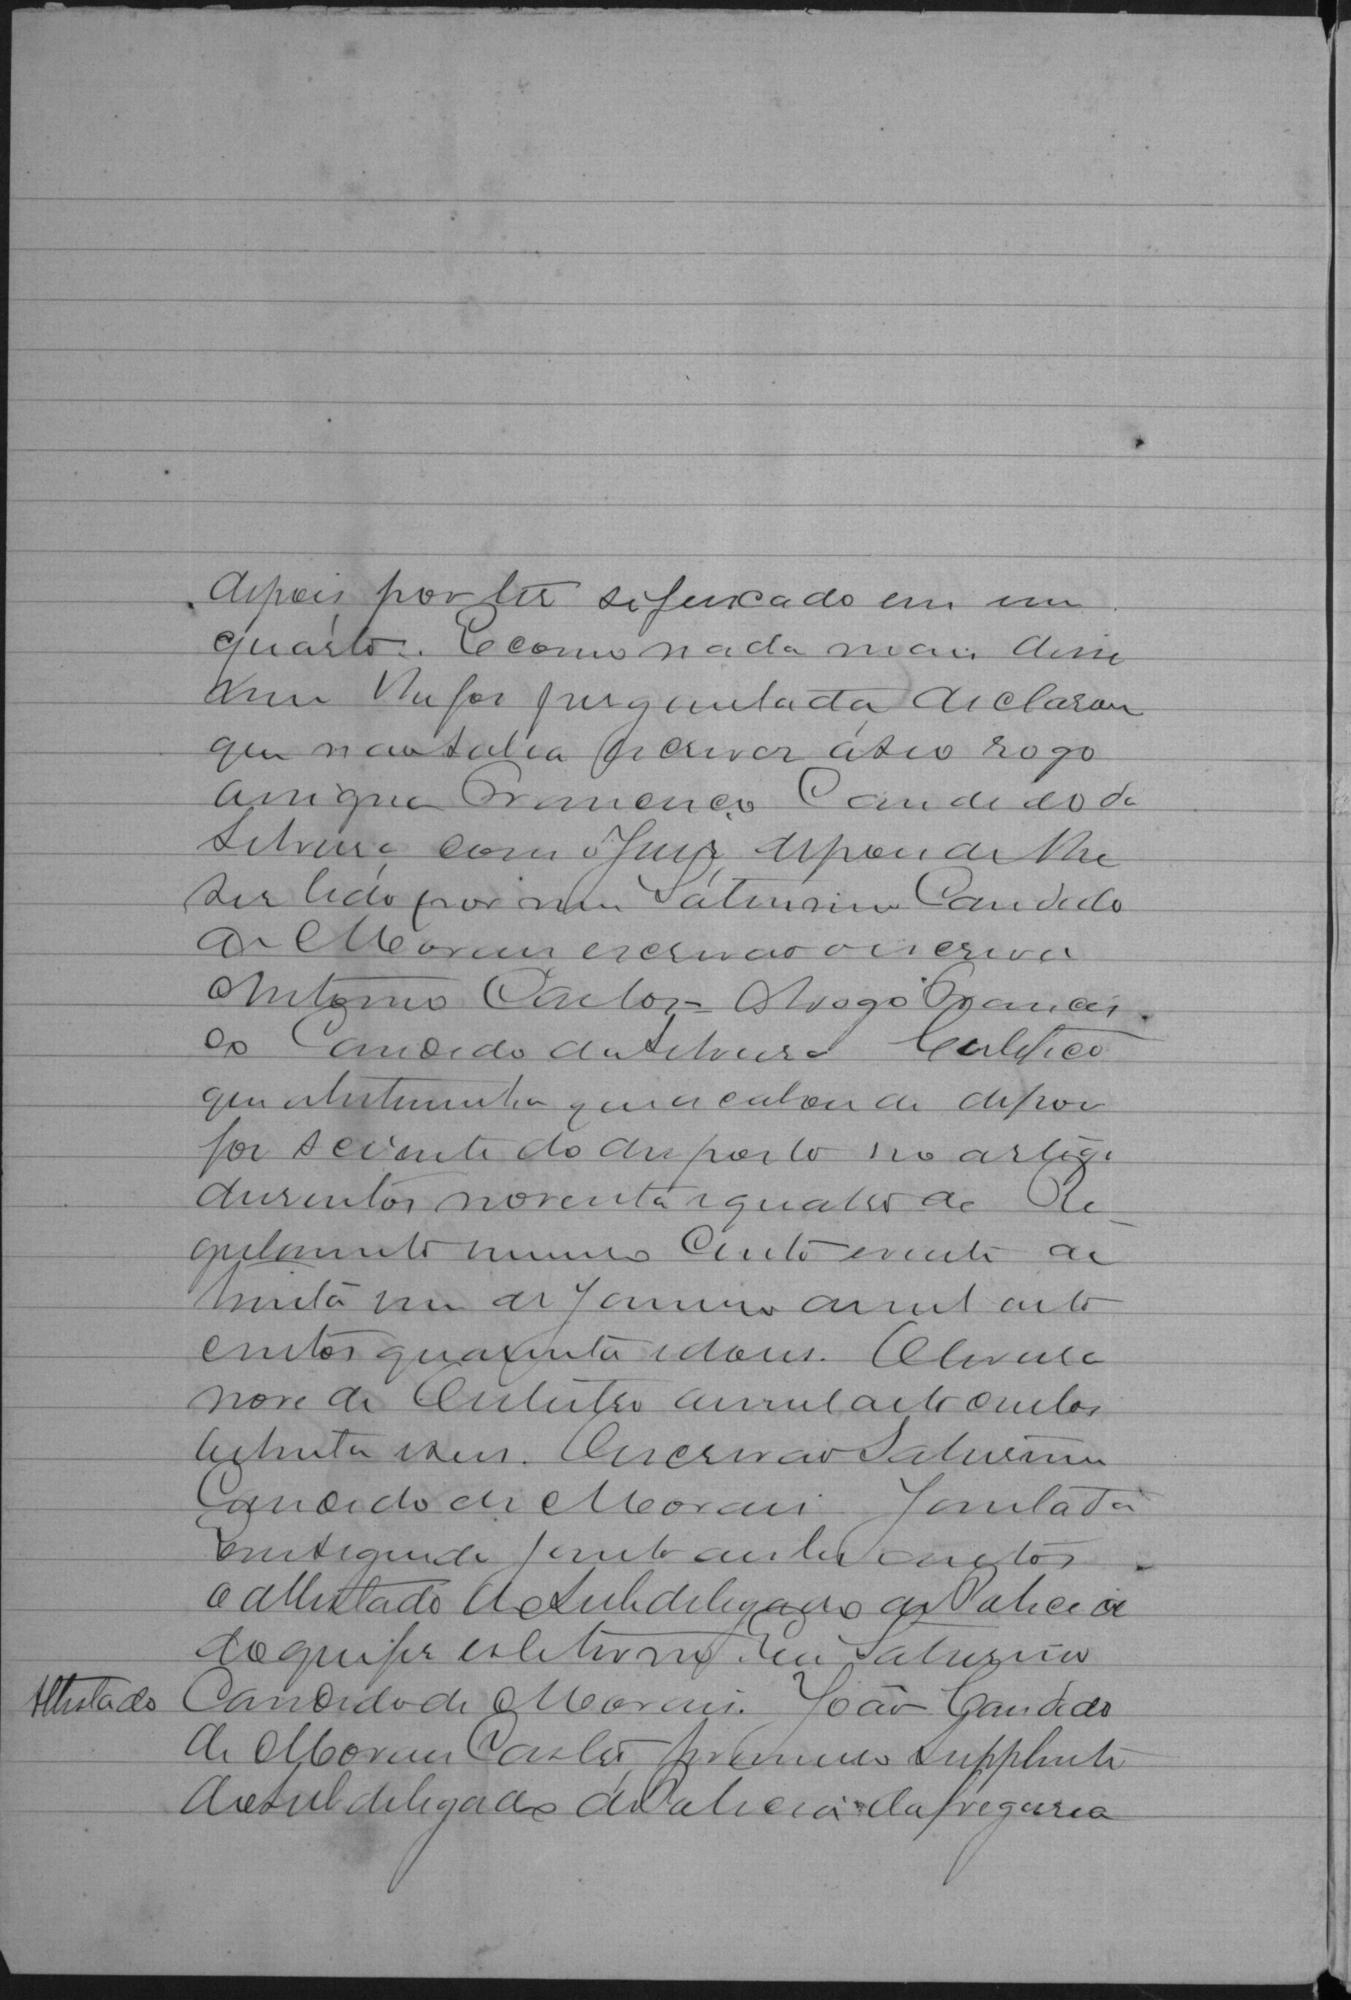 depois por ter se fexcado em um
quarto. E como nada mais disse
nem lhe foi perguntada declarou
que não sabia escrever á seo rogo
assigna Francisco Candido da
Silveira com o Juiz, depois de lhe
ser lido por mim Saturnino Candido
de Moraes escrivão o escrevi
Antonio Carlos = Arogo Francis
co Candido da Silveira Certifico
que a testemunha que acabou de depor
foi sciente do disposto no artigo
dusentos noventa e quatro do Re
gulamento numero Cento e vinte de
trinta um de Janeiro de mil oito
centos quarenta e dous. Oliveira
nove de Outubro de mil oito centos
oitenta e seis. O escrivão Saturnino
Candido de Moraes Juntada
Em seguida junto a estes autos
o attestado do Subdelegado de Policia
do que fis este termo. Eu Saturnino
Attestado Candido de Moraes. João Candido
de Moraes Castro, primeiro supplente
do Subdelegado de Policia da freguesia